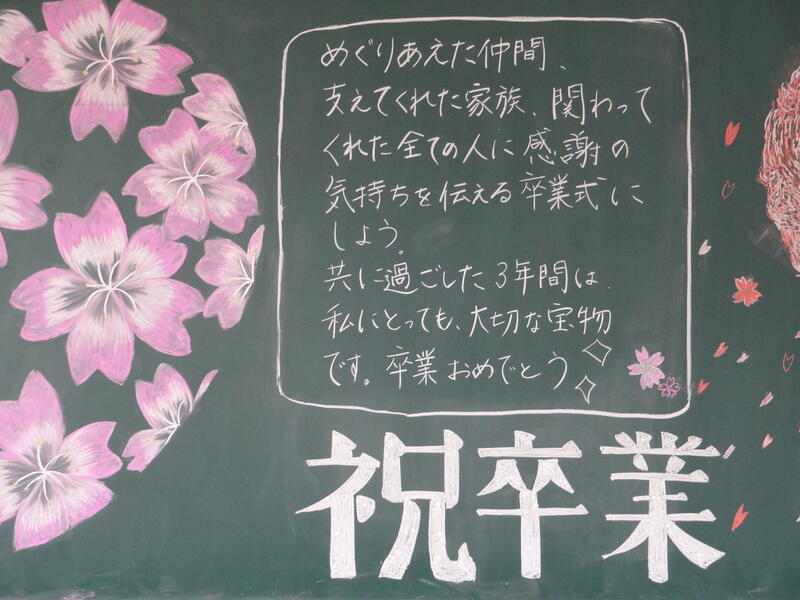 めぐりあえた仲間、
支えてくれた家族、関わって
くれた全ての人に感謝の
気持ちを伝える卒業式に
しよう。
共に過ごした3年間は、
私にとっても、大切な宝物
です。卒業おめでとう
祝卒業